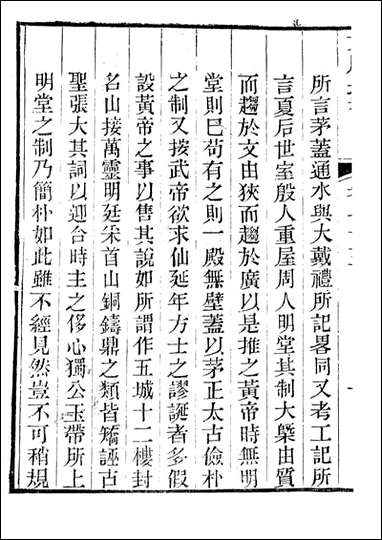 所言茅蓋通水與大戴禮所記畧同又考工記所
言夏后世室殷人重屋周人明堂其制大槩由質
而趨於文由狹而趨於廣以是推之黃帝時無明
堂則已苟有之則一殿無壁蓋以茅正太古儉朴
之制又按武帝欲求仙延年方士之謬誕者多假
設黃帝之事以售其說如所謂作五城十二樓封
名山接萬靈明廷采首山銅鑄鼎之類皆矯誣古
聖張大其詞以迎合時主之侈心獨公玉帶所上
明堂之制乃簡朴如此雖不經見然豈不可稍規